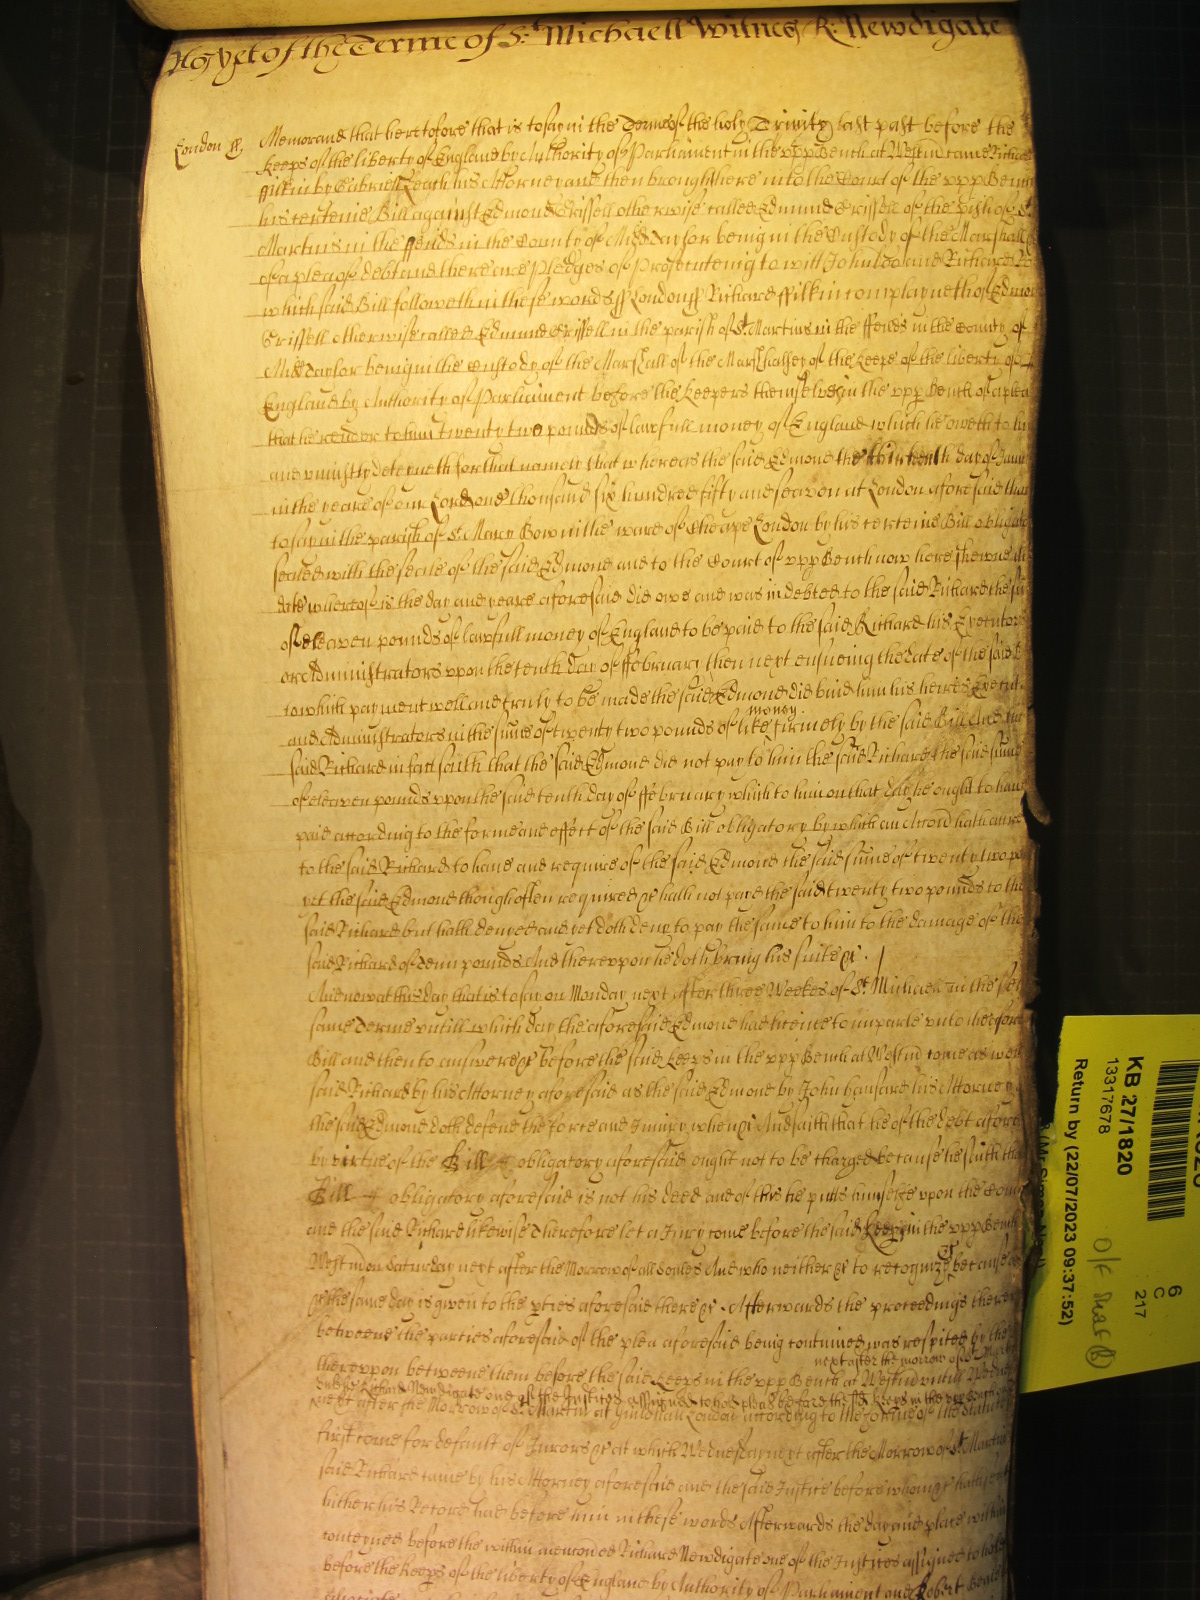 As yet of the Terme of St. Michaell Witnes R: Newdigate
London ss. Memorand that heretofore that is to say in the Terme of the holy Trinity last past before the
keeps of the liberty of England by Authority of Parliament in the vpp Bench at Westm came Richard
ffilkin by Gabriell Leach his Attorney and then brought here into the Court of the vpp Bench
his certeine Bill against Edmond Grissell otherwise called Edmund Grissell of the pish of St.
Martins in the ffeilds in the County of Midd taylor being in the Custody of the Marshall
of a plea of debt and there are Pledges of Prosecuteing to witt John Doo and Richard
which said Bill followeth in these words ss London ss Richard ffilkin complayneth of Edmond
Grissell otherwise called Edmund Grissell in the parish of St. Martins in the ffeilds in the County of
Midd taylor being in the Custody of the Marshall of the Marshalsey of the keeps of the liberty of
England by Authority of Parliament before the keepers themselves in the vpp Bench of a plea
that he render to him twenty two pounds of lawfull money of England which he oweth to him
and vniustly deteyneth for that namely that whereas the said Edmond the thirtenth day of
in the yeare of our Lord one thousand six hundred fifty and seaven at London aforesaid that
to say in the parish of St. Mary Bow in the ward of Cheape London by his certeine Bill obligatory
sealed with the seale of the said Edmond and to the Court of vpp Bench now here shewne the
date whereof is the day and yeare aforesaid did owe and was indebted to the said Richard the
of eleaven pounds of lawfull money of England to be paid to the said Richard his Executors
or Administrators vpon the tenth day of ffebruary then next ensueing the date of the said
to which payment well and truly to be made the said Edmond did bind him his heires
and Administrators in the sume of twenty two pounds of like money firmely by the said Bill And
said Richard in fact saith that the said Edmond did not pay to him the said Richard the said sume
of eleaven pounds vpon the said tenth day of ffebruary which to him on that day he ought to have
paid according to the forme and effect of the said Bill obligatory by which an Accon hath
to the said Richard to have and require of the said Edmond the said sume of twenty two
yet the said Edmond though often required &c hath not payd the said twenty two pounds to the
said Richard but hath denyed and yet doth deny to pay the same to him to the damage of the
said Richard of tenn pounds And therevpon he doth bring his suite &c.
And now at this day that is to say on Monday next after three Weekes of St. Michael in the
same Terme vntill which day the aforesaid Edmond had licence to imparle vnto the
Bill and then to answere &c before the said keeps in the vpp Bench at Westm came as well
said Richard by his Attorney aforesaid as the said Edmond by John hansard his Attorney
the said Edmond doth defend the force and Iniury when &c And saith that he of the debt aforesaid
by virtue of the Bill obligatory aforesaid ought not to be charged because he saith that
Bill obligatory aforesaid is not his deed and of this he putts himselfe vpon the
and the said Richard likewise Therefore let a Iury come before the said keeps in the vpp Bench
Westm on Saturday next after the Morrow of all Soules And who neither &c to recognize &c because
&c the same day is given to the pties aforesaid there &c. Afterwards the proceedings
betweene the parties aforesaid of the plea aforesaid being continued was respited by the
therevpon betweene them before the said keeps in the vpp Bench at Westm vntill
next after the morrow of St. Martin
vnles Richard Newdigate one of the Iustices assigned to hold pleas before the keeps in the vpp Bench
next after the Morrow of St. Martin at Guildhall London according to the forme of the Statute
first come for default of Iurors &c at which Wednesday next after the Morrow of St. Martin
said Richard came by his Attorney aforesaid and the said Iustice before whom &c hath
hither his Record had before him in these words Afterwards the day and place within
conteyned before the within mentioned Richard Newdigate one of the Iustices assigned to hold
before the keeps of the liberty of England by Authority of Parliament and Robert
KB 27/1820
13317678
Return by (22/07/2023 09:37:52)
6
C
217